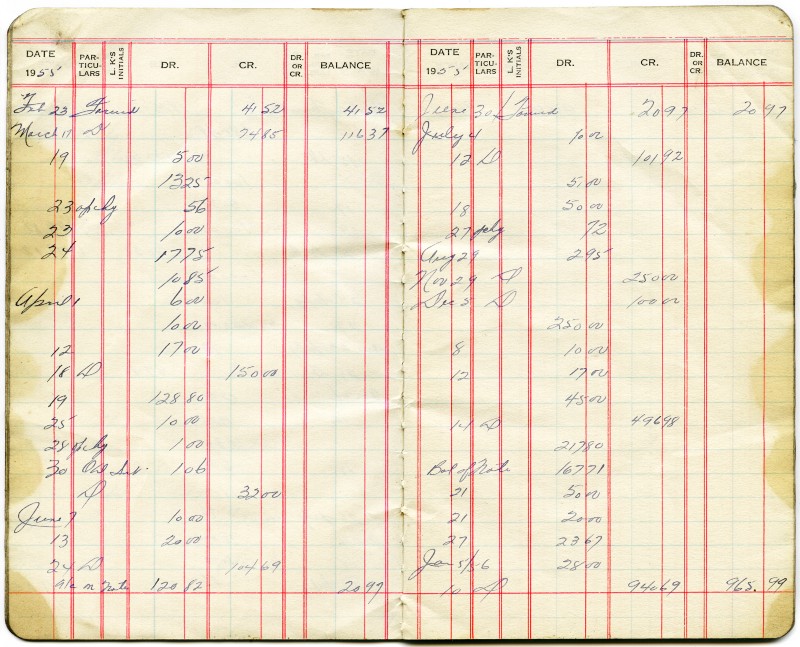 DATE 1955 PARTICULARS L. K'S INITIALS DR. CR. DR. OR CR. BALANCE
Feb 23 Forward 41 52 41 52
March 17 D 74 85 116 37
19 5 00
13 25
23 op chg 56
23 10 00
24 17 75
10 85
April 1 6 00
10 00
12 17 00
18 D 150 00
19 128 80
25 10 00
28 op chg 1 00
30 Int. 1 06
D 32 00
June 7 10 00
13 20 00
24 D 104 69
a/c on Note 120 82 20 97
DATE 1955 PARTICULARS L. K'S INITIALS DR. CR. DR. OR CR. BALANCE
June 30 Forward 20 97 20 97
July 4 10 00
12 D 101 92
5 00
18 50 00
27 op chg 72
Aug 29 2 95
Nov 29 D 250 00
Dec 5 D 100 00
250 00
8 10 00
12 17 00
45 00
14 D 496 98
217 80
Bal of Note 167 71
21 50 00
21 20 00
27 23 67
Jan 5/56 28 00
10 D 940 69 965. 99